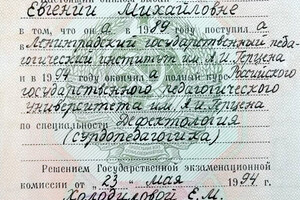 Евгении Михайловне
в том, что он а в 1989 году поступил а
в Ленинградский государственный педа-
гогический институт им. А.И. Герцена
и в 1994 году окончил а полный курс Российского
государственного педагогического
университета им. А.И. Герцена
по специальности дефектология
(сурдопедагогика)
Решением Государственной экзаменационной
комиссии от " 23 " мая 1994 г.
Е.М.